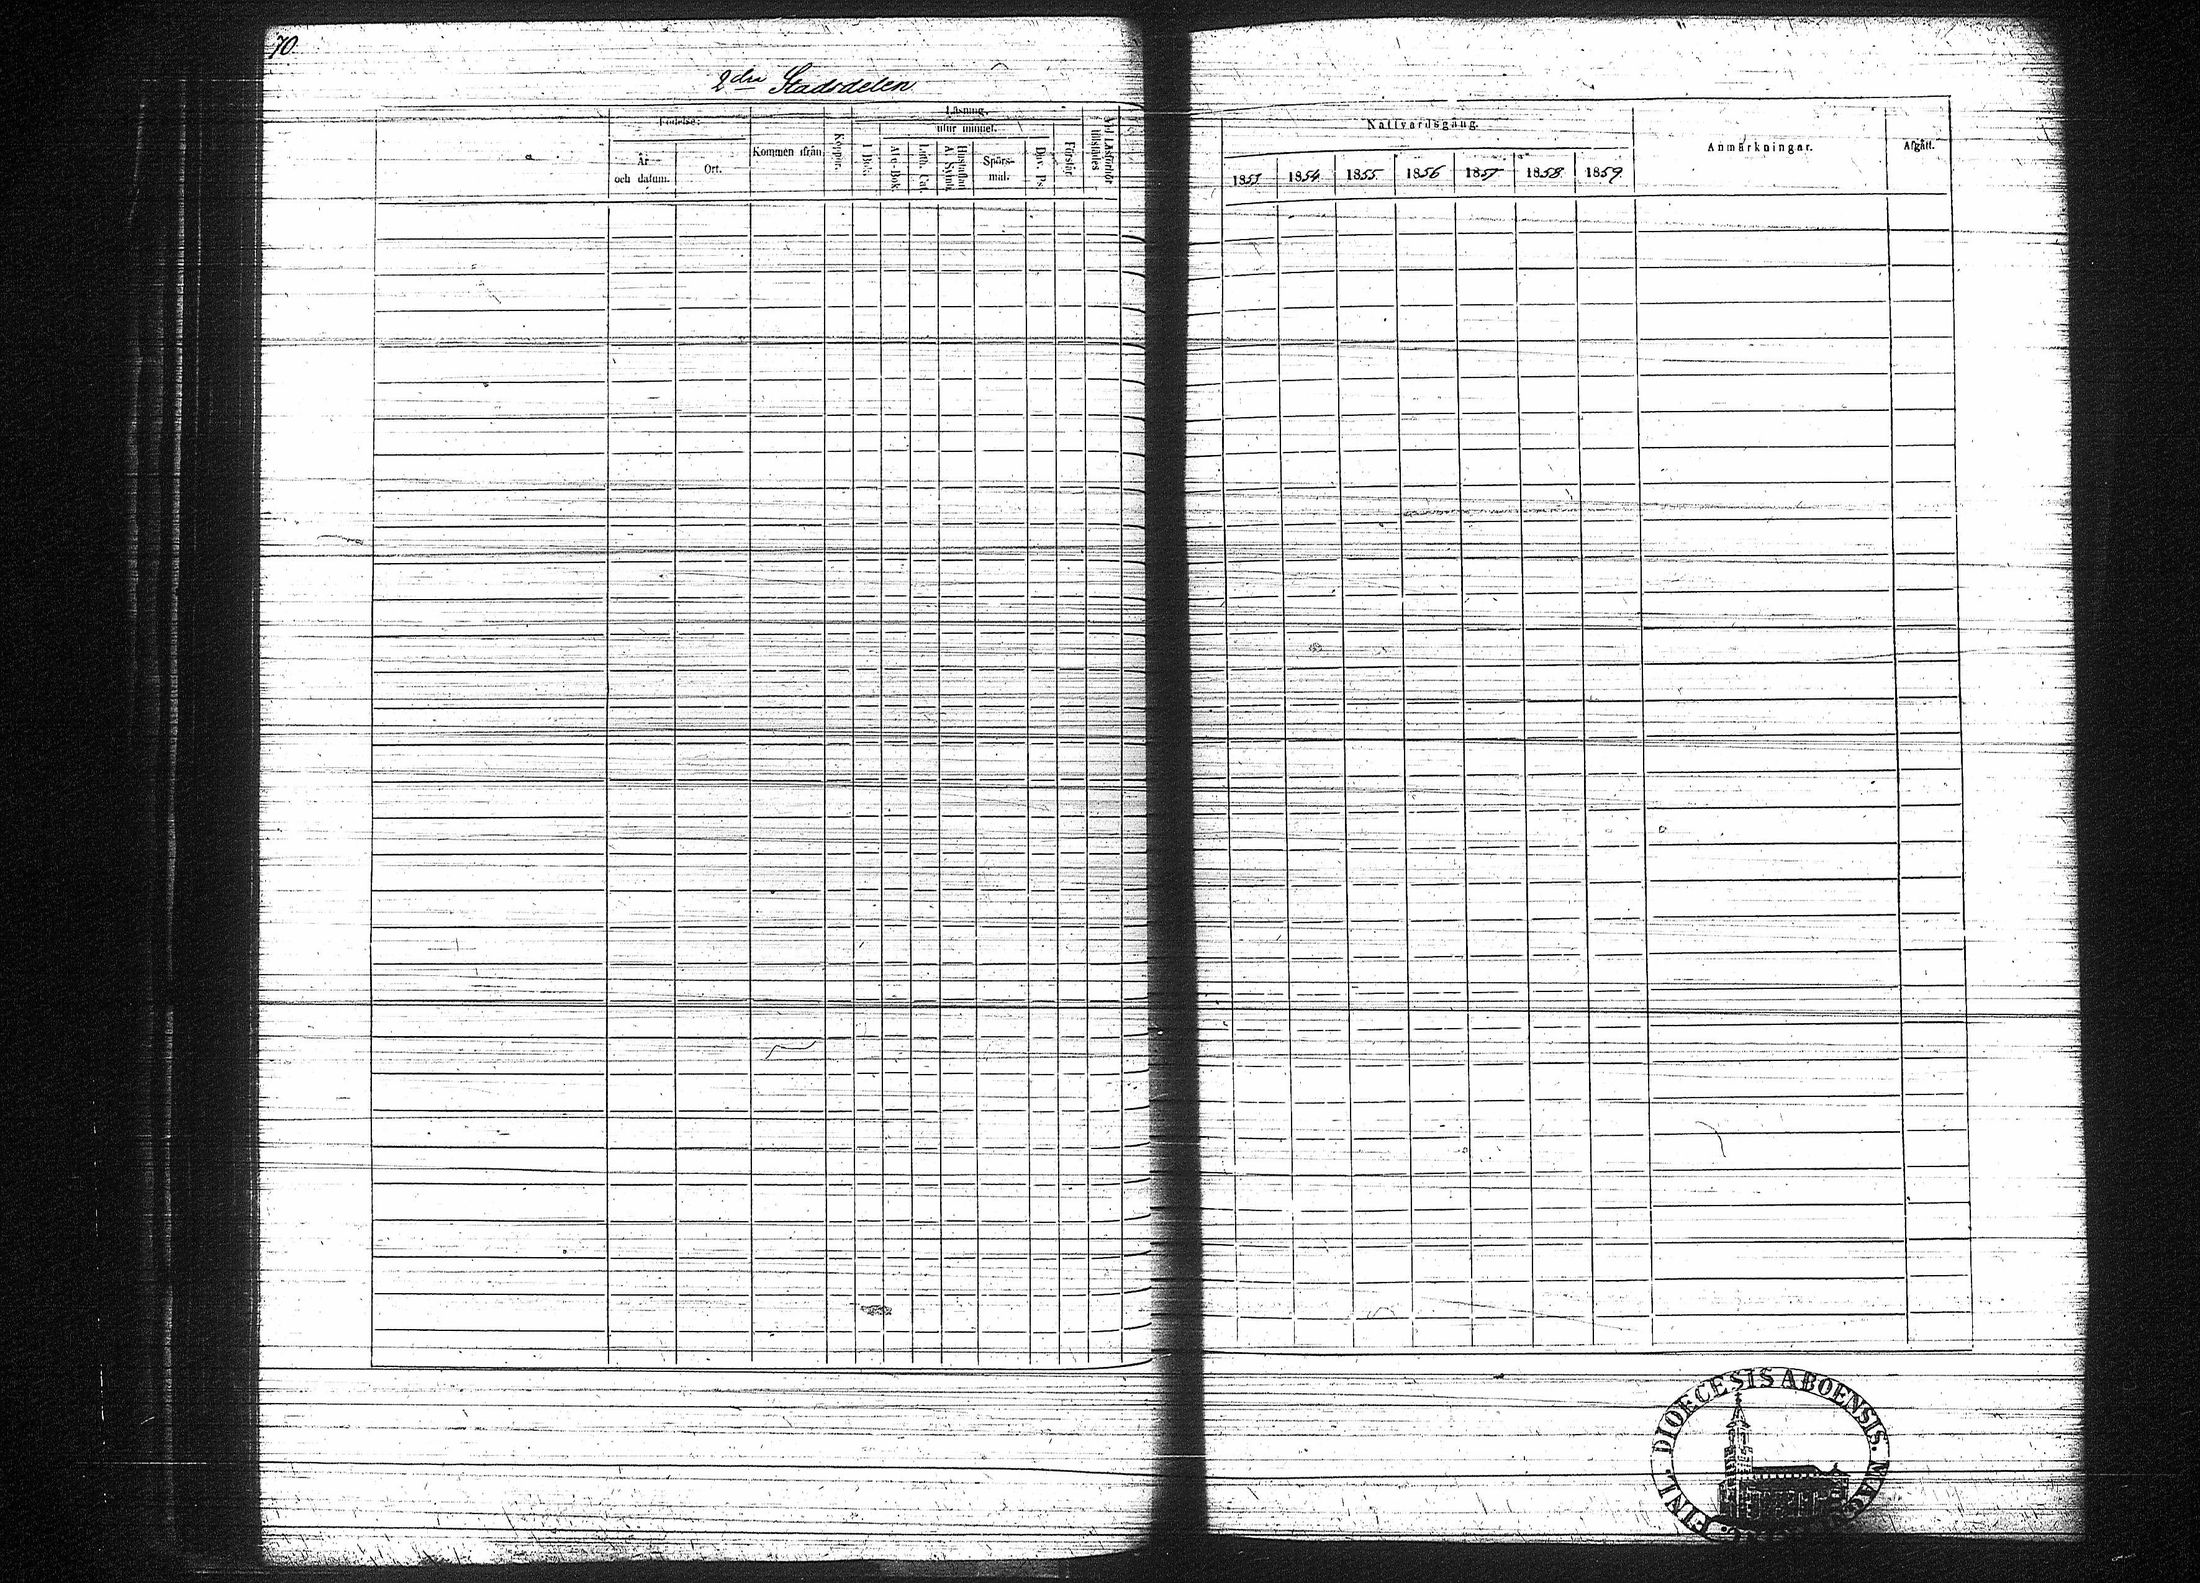 70.
2dra Stadsdelen
Födelse-
År
och datum.
Ort.
Kommen ifrån
Koppor.
Läsning.
utur minnet.
I Bok.
Abc-Bok
Luth. Cat.
Hustaflan
A. Symb.
Spörs-
mål.
Dav. Ps.
Förstår.
Vid Läsförhör
tillstädes
Nattvardsgång.
1853 1854 1855 1856 1857 1858 1859.
Anmärkningar.
Afgått.
FINL. DIOECESIS ABOENSIS. MAG